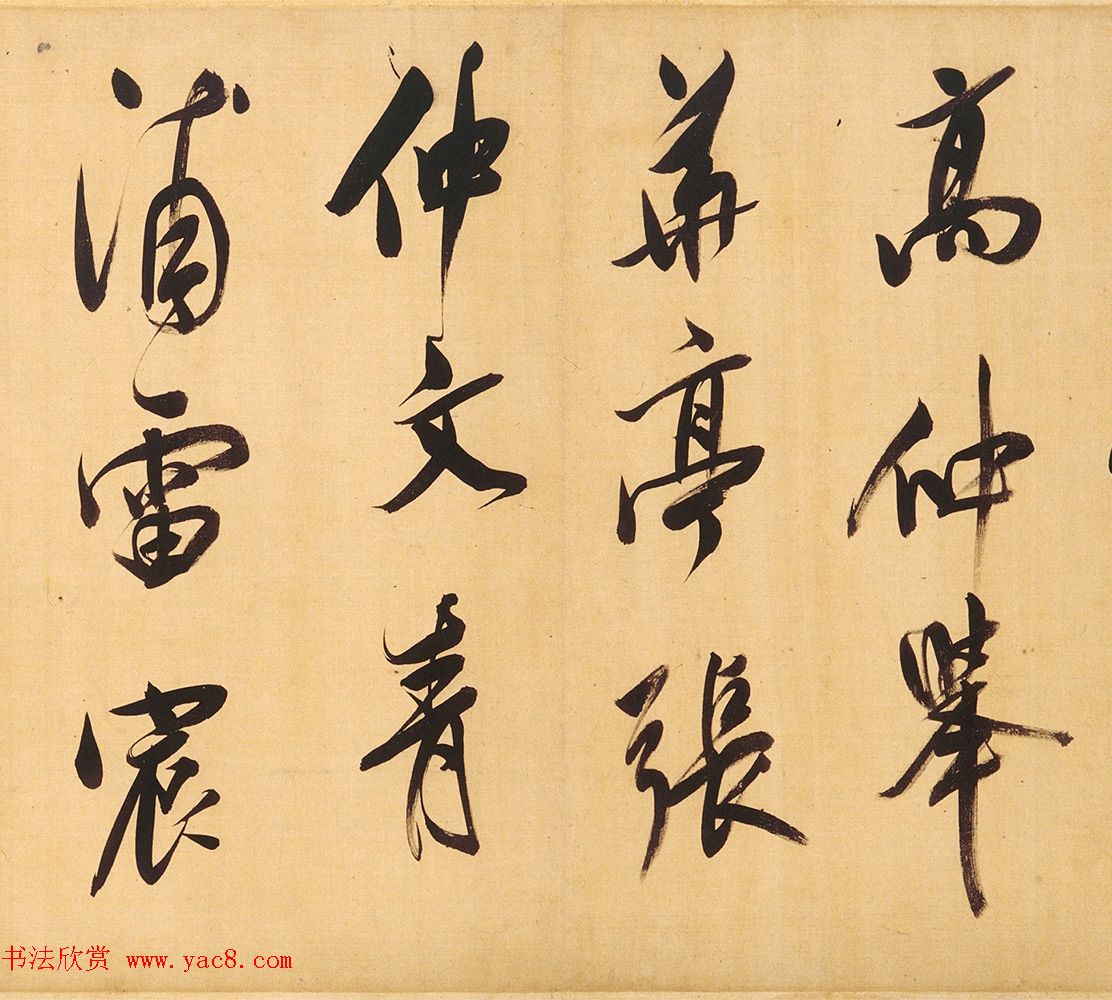 高仲舉
華亭張
仲文青
浦雷宸
书法欣赏 www.yac8.com